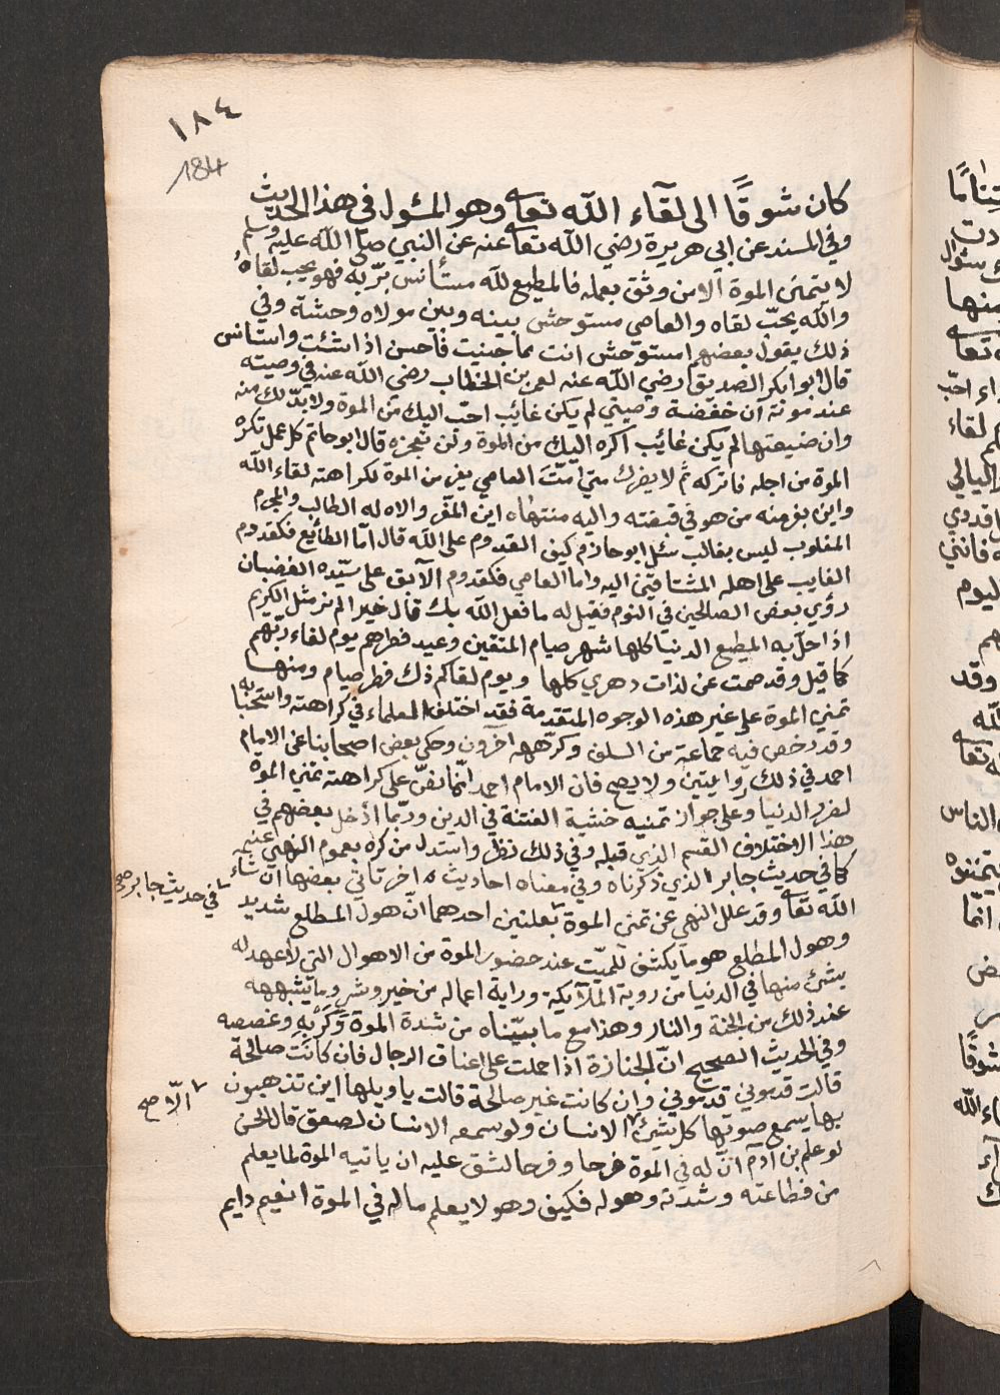 ١٨٤
184
كان شوقًا الى لقآء الله تعالى وهو المسئول في هذا الحديث
وفي المسند عن ابي هريرة رضي الله تعالى عنه عن النبي صلى الله عليه وسلم
لا يتمنى الموة الا من وثق بعمله فالمطيع لله مستأنس بربه فهو يحب لقاه
والله يحب لقاه والعاصي مستوحش بينه وبين مولاه وحشة وفي
ذلك يقول بعضهم امستوحش انت مما جنيت فأحسن اذا شئت واستانس
قال ابو ابكر الصديق رضي الله عنه لعمر بن الخطاب رضي الله عنه في وصيته
عند موته ان حفضة وصيتي لم يكن غائب احب اليك من الموة ولا بد لك منه
وان ضيعتها لم يكن غائب اكره اليك من الموة ولن تعجزه قال ابو حاتم كل عمل تكره
الموة من اجله فاتركه ثم لا يضرك متى امت العاصي يفر من الموة لكراهته لقاء الله
واين يفر منه من هو في قبضته واليه منتهاه اين المفر والاه له الطالب والمجرم
المغلوب ليس بغالب سئل ابو حازم كيف القدوم على الله قال اما الطائع فكقدوم
الغايب على اهله المشتاقين اليه واما العاصي فكقدوم الآبق على سيده الغضبان
رؤي بعض الصالحين في النوم فقيل له ما فعل الله بك قال خيرا لم نر مثل الكريم
اذا حل به المطيع الدنيا كلها شهر صيام المتقين وعيد فطرهم يوم لقاء ربهم
كما قيل وقد صمت عن لذات دهري كلها ويوم لقاكم ذك فطر صيام ومنها
تمني الموة على غير هذه الوجوه المتقدمة فقد اختلف العلماء في كراهته واستحبابه
وقد رخص فيه جماعة من السلف وكرهه اخرون وحكى بعض اصحابنا عن الامام
احمد في ذلك روايتين ولا يصح فان الامام احمد انما نص على كراهة تمني الموة
لضرر الدنيا وعلى جواز تمنيه خشية الفتنة في الدين وربما ادخل بعضهم في
هذا الاختلاف القسم الذي قبله وفي ذلك نظر واستدل من كره بعموم النهي عنه
كما في حديث جابر الذي ذكرناه وفي معناه احاديث اخر تأتي بعضها ان شاء
في حديث جابر صح
الله تعالى وقد علل النهي عن تمني الموة بعلتين احدهما ان هول المطلع شديد
وهول المطلع هو ما يكشف للميت عند حضور الموة من الاهوال التي لا عهد له
بشئ منها في الدنيا من روية الملآيكة وراية اعماله من خير وشر وما يشبهه
عند ذلك من الجنة والنار وهذا مع ما بيناه من شدة الموة وكربه وغصصه
وفي الحديث الصحيح ان الجنازة اذا حملت على اعناق الرجال فان كانت صالحة
قالت قدموني قدموني وان كانت غير صالحة قالت يا ويلها اين تذهبون
الا صح
بها يسمع صوتها كل شئ الانسان ولو سمعه الانسان لصعق قال الحسن
لو علم بن آدم ان له في الموة فرحا وفرحا لشق عليه ان ياتيه الموة لما يعلم
من فظاعته وشدته وهوله فكيف وهو لا يعلم ماله في الموة انعيم دايم